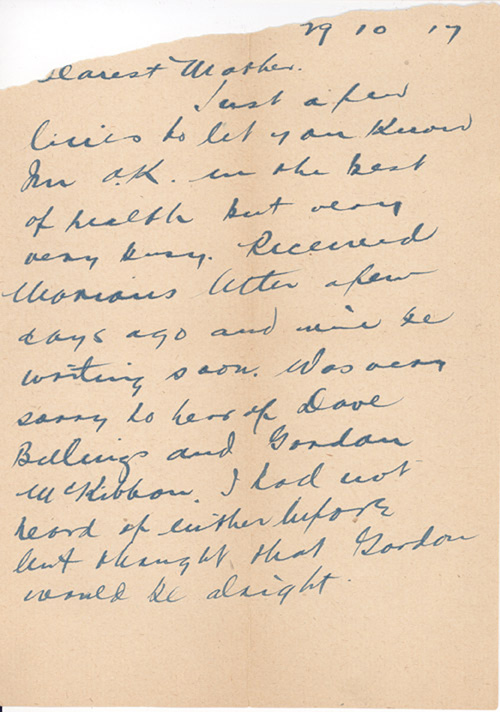 29 10 17
Dearest Mother.
Just a few
lines to let you know
Im O.K. in the best
of health but very
very busy. Received
Marions letter a few
days ago and will be
writing soon. Was very
sorry to hear of Dave
Billings and Gordon
McKibbon. I had not
heard of either before
but thought that Gordon
would be alright.